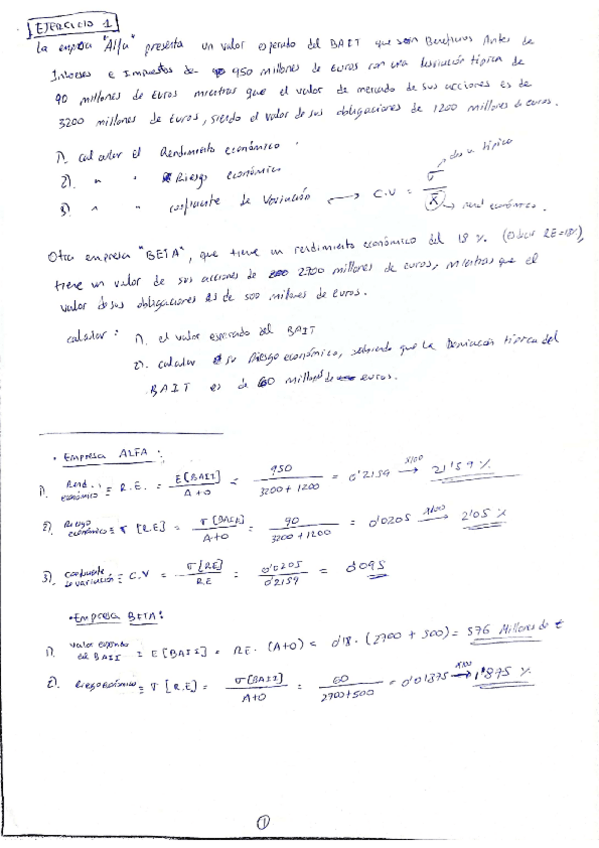 EJERCICIO 1
La empresa "Alfa" presenta un valor esperado del BAIT que son Beneficios Antes de
Intereses e Impuestos de 950 millones de euros con una desviación típica de
90 millones de euros mientras que el valor de mercado de sus acciones es de
3200 millones de euros, siendo el valor de sus obligaciones de 1200 millones de euros.
1). calcular el Rendimiento económico.
2). " " Riesgo económico
3) " " coeficiente de variación → C.V = σ / x̄
desv. típica
rend. económico.
Otra empresa "BETA", que tiene un rendimiento económico del 18 %. (RE=18%),
tiene un valor de sus acciones de 2700 millones de euros, mientras que el
valor de sus obligaciones es de 500 millones de euros.
calcular: 1). el valor esperado del BAIT
2). calcular su Riesgo económico, sabiendo que la Desviación típica del
BAIT es de 60 millones de euros.
• Empresa ALFA:
1). Rend. económico ≡ R.E. = E[BAIT] / A+O = 950 / 3200 + 1200 = 0'2159 x100 → 21'59 %
2). Riesgo económico ≡ σ [R.E] = σ [BAIT] / A+O = 90 / 3200 + 1200 = 0'0205 x100 → 2'05 %
3). coeficiente de variación ≡ C.V = σ [RE] / RE = 0'0205 / 0'2159 = 0'095
• Empresa BETA:
1). Valor esperado del BAII = E [BAII] = RE. (A+O) = 0'18 · (2700 + 500) = 576 Millones de €
2). Riesgo económico ≡ σ [R.E] = σ [BAII] / A+O = 60 / 2700+500 = 0'01875 x100 → 1'875 %
1